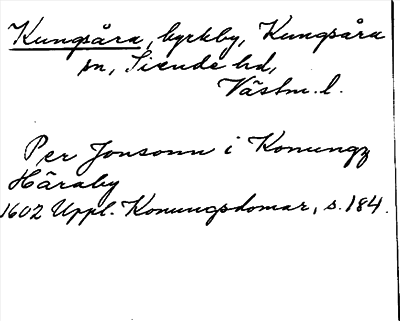 Kungsåra, kyrkby, Kungsåra
sn, Siende hd,
Västm. l.
Per Jonsonn i Konungz
Häraby
1602 Uppl. Konungsdomar, s. 184.